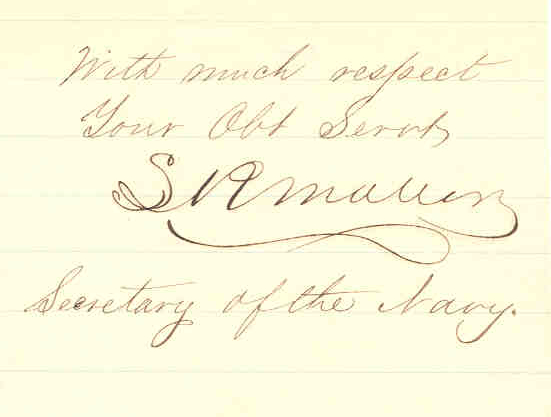 With much respect
Your Obt Servt
S R Mallory
Secretary of the Navy.